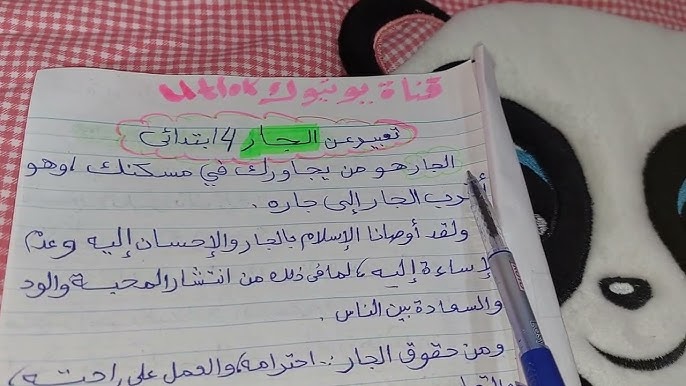 قناة يوتيوب utlok
تعبير عن الجار 4 ابتدائي
الجار هو من يجاورك في مسكنك، وهو
الجار إلى جاره.
ولقد أوصانا الإسلام بالجار والإحسان إليه وعدم
الإساءة إليه، لما في ذلك من انتشار المحبة والود
والسعادة بين الناس.
ومن حقوق الجار: احترامه، والعمل على راحته،